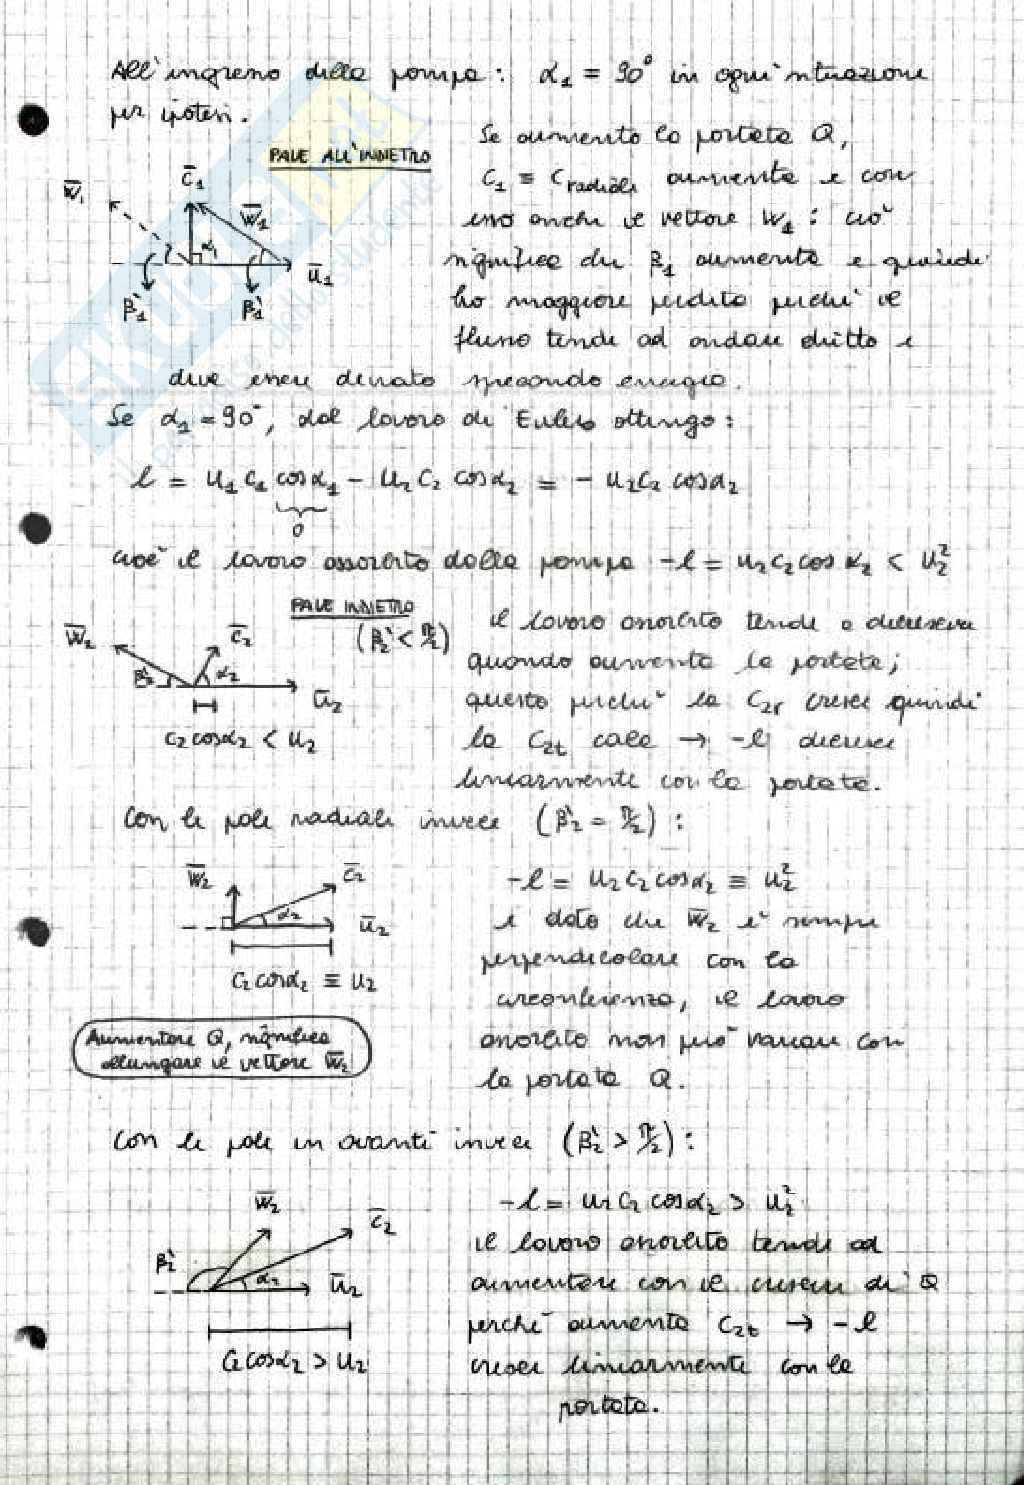 All'ingresso della pompa: α₁ = 90° in ogni situazione
per ipotesi.
PALE ALL'INDIETRO
Se aumento la portata Q,
c₁ ≡ c radiale aumenta e con
esso anche il vettore w₁: ciò
significa che β₁ aumenta e quindi
ho maggiore perdita perché il
flusso tende ad andare dritto e
deve essere deviato sprecando energia.
w̄₁ c̄₁ w̄₁ α₁ ū₁
β₁' β₁'
Se α₁ = 90°, dal lavoro di Eulero ottengo:
l = u₁ c₁ cosα₁ - u₂ c₂ cosα₂ = - u₂ c₂ cosα₂
0
cioè il lavoro assorbito dalla pompa -l = u₂ c₂ cos α₂ < u₂²
PALE INDIETRO
(β₂' < π/2)
w̄₂ c̄₂
β₂' α₂ ū₂
c₂ cosα₂ < u₂
il lavoro assorbito tende a decrescere
quando aumenta la portata;
questo perché la c₂r cresce quindi
la c₂t cala → -l decresce
linearmente con la portata.
Con le pale radiali invece (β₂' = π/2):
w̄₂ c̄₂
α₂ ū₂
c₂ cosα₂ ≡ u₂
-l = u₂ c₂ cosα₂ ≡ u₂²
e dato che w̄₂ è sempre
perpendicolare con la
circonferenza, il lavoro
assorbito non può variare con
la portata Q.
Aumentare Q, significa
allungare il vettore w̄₂
Con le pale in avanti invece (β₂' > π/2):
w̄₂ c̄₂
β₂' α₂ ū₂
c₂ cosα₂ > u₂
-l = u₂ c₂ cosα₂ > u₂²
il lavoro assorbito tende ad
aumentare con il crescere di Q
perché aumenta c₂t → -l
cresce linearmente con la
portata.